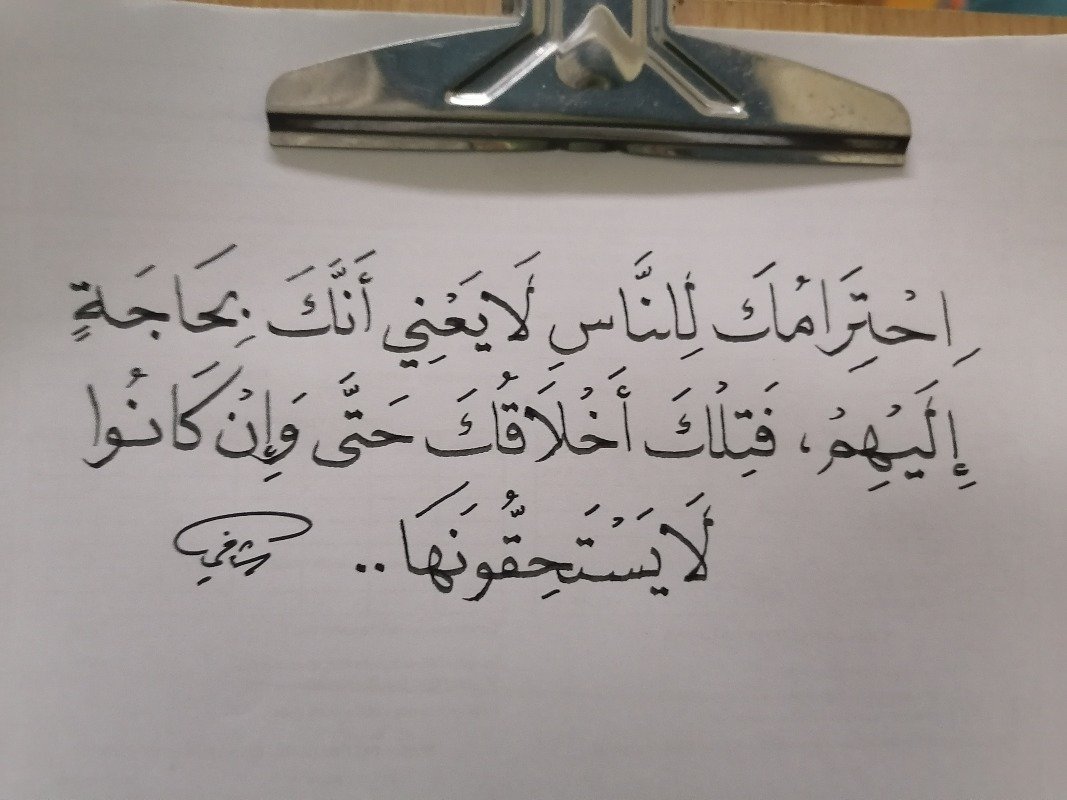 اِحْتِرَامُكَ لِلنَّاسِ لَا يَعْنِي أَنَّكَ بِحَاجَةٍ
إِلَيْهِمْ، فَتِلْكَ أَخْلَاقُكَ حَتَّى وَإِنْ كَانُوا
لَا يَسْتَحِقُّونَهَا..